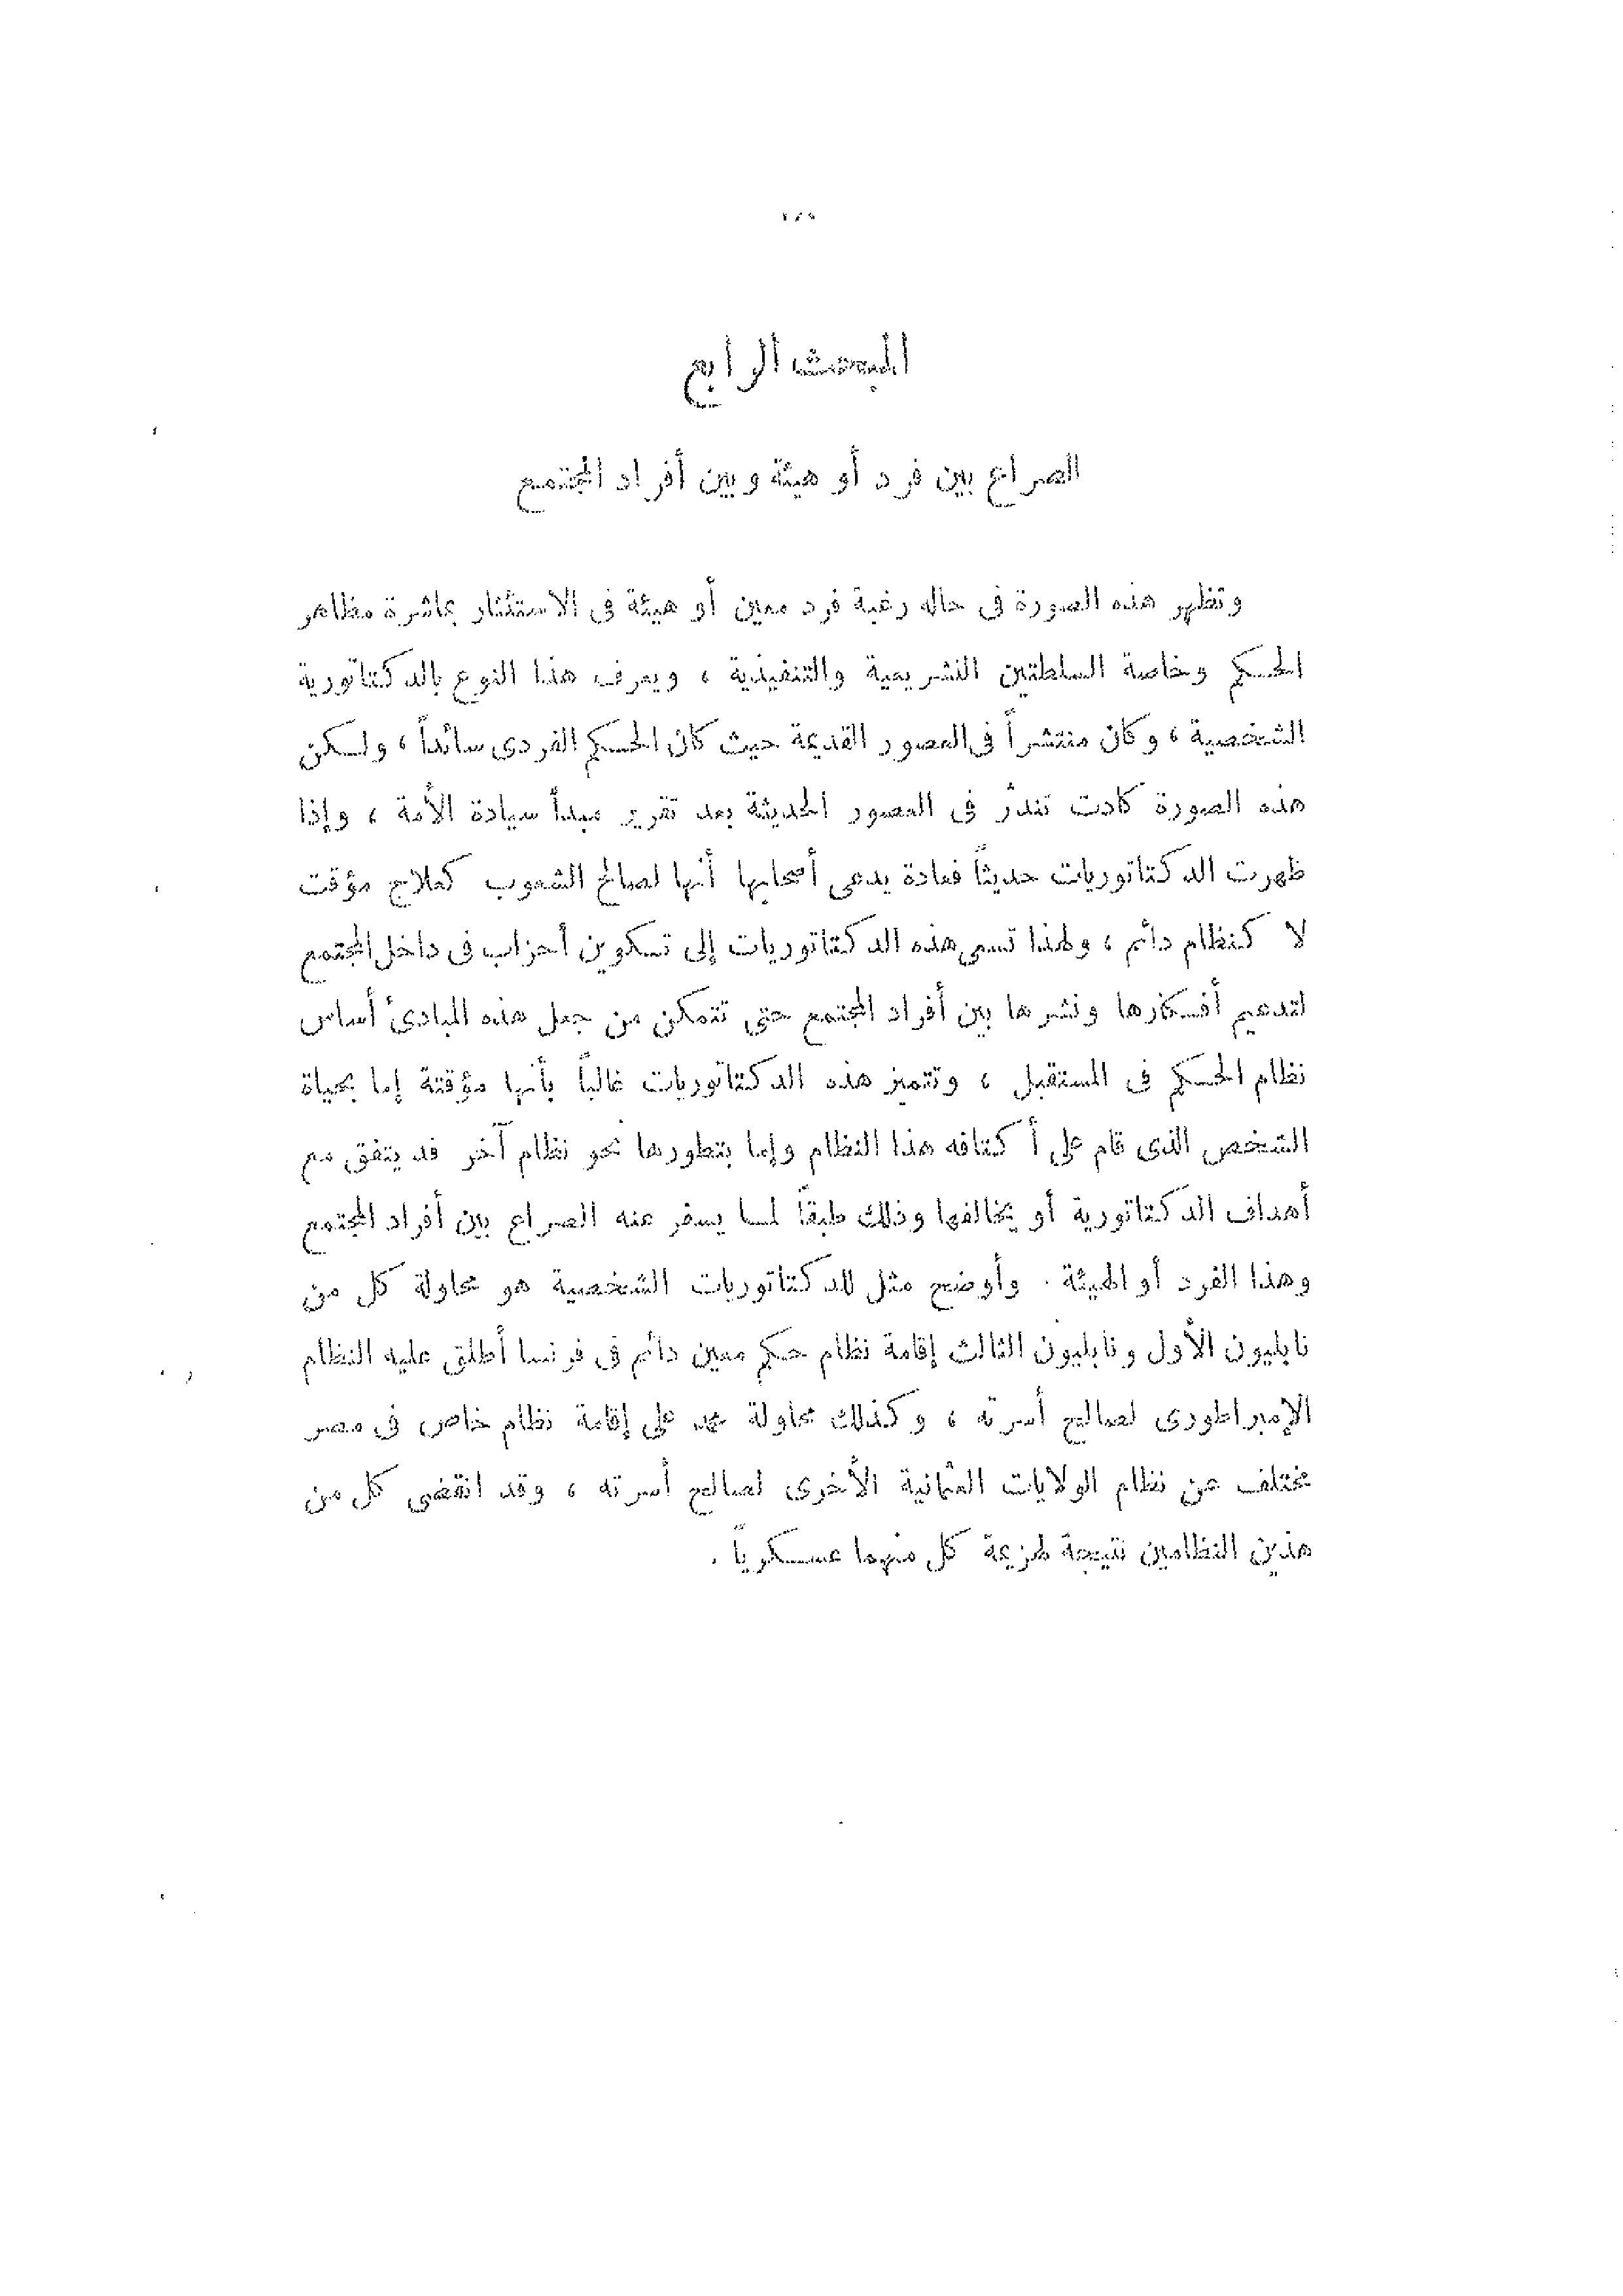 المبحث الرابع
الصراع بين فرد أو هيئة وبين أفراد المجتمع
وتظهر هذه الصورة فى حاله رغبة فرد معين أو هيئة فى الاستئثار بمباشرة مظاهر
الحكم وخاصة السلطتين التشريعية والتنفيذية ، ويعرف هذا النوع بالدكتاتورية
الشخصية ، وكان منتشراً فى العصور القديمة حيث كان الحكم الفردى سائداً ، ولكن
هذه الصورة كادت تندثر فى العصور الحديثة بعد تقرير مبدأ سيادة الأمة ، وإذا
ظهرت الدكتاتوريات حديثاً فعادة يدعى أصحابها أنها لصالح الشعوب كعلاج مؤقت
لا كنظام دائم ، ولهذا تسعى هذه الدكتاتوريات إلى تكوين أحزاب فى داخل المجتمع
لتدعيم أفكارها ونشرها بين أفراد المجتمع حتى تتمكن من جعل هذه المبادئ أساس
نظام الحكم فى المستقبل ، وتتميز هذه الدكتاتوريات غالباً بأنها مؤقتة إما بحياة
الشخص الذى قام على أكتافه هذا النظام وإما بتطورها نحو نظام آخر قد يتفق مع
أهداف الدكتاتورية أو يخالفها وذلك طبقاً لما يسفر عنه الصراع بين أفراد المجتمع
وهذا الفرد أو الهيئة . وأوضح مثل للدكتاتوريات الشخصية هو محاولة كل من
نابليون الأول ونابليون الثالث إقامة نظام حكم معين دائم فى فرنسا أطلق عليه النظام
الإمبراطورى لصالح أسرته ، وكذلك محاولة محمد على إقامة نظام خاص فى مصر
مختلف عن نظام الولايات العثمانية الأخرى لصالح أسرته ، وقد انقضى كل من
هذين النظامين نتيجة لهزيمة كل منهما عسكرياً .